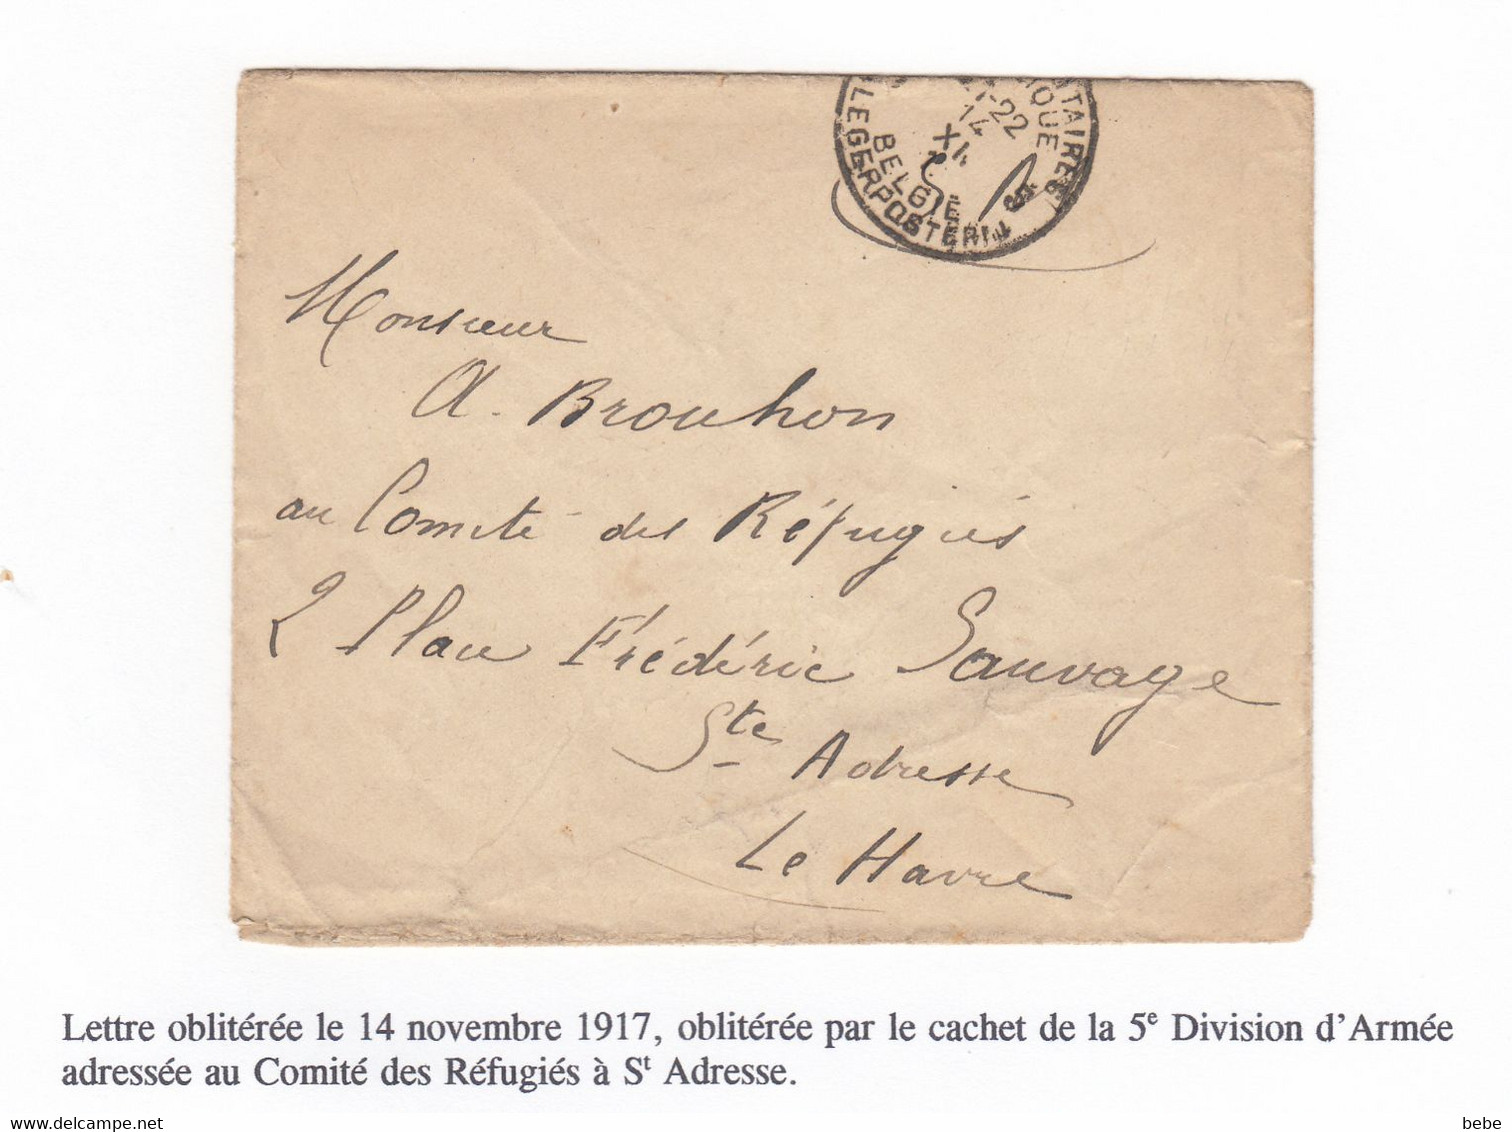 TAIRES
IQUE
21-22
14
XI
BELGIË
LEGERPOSTERIJ
5
Monsieur
A. Brouhon
au Comité des Réfugiés
2 Place Frédéric Sauvage
Ste Adresse
Le Havre
Lettre oblitérée le 14 novembre 1917, oblitérée par le cachet de la 5e Division d'Armée
adressée au Comité des Réfugiés à St Adresse.
delcampe.net
bebe